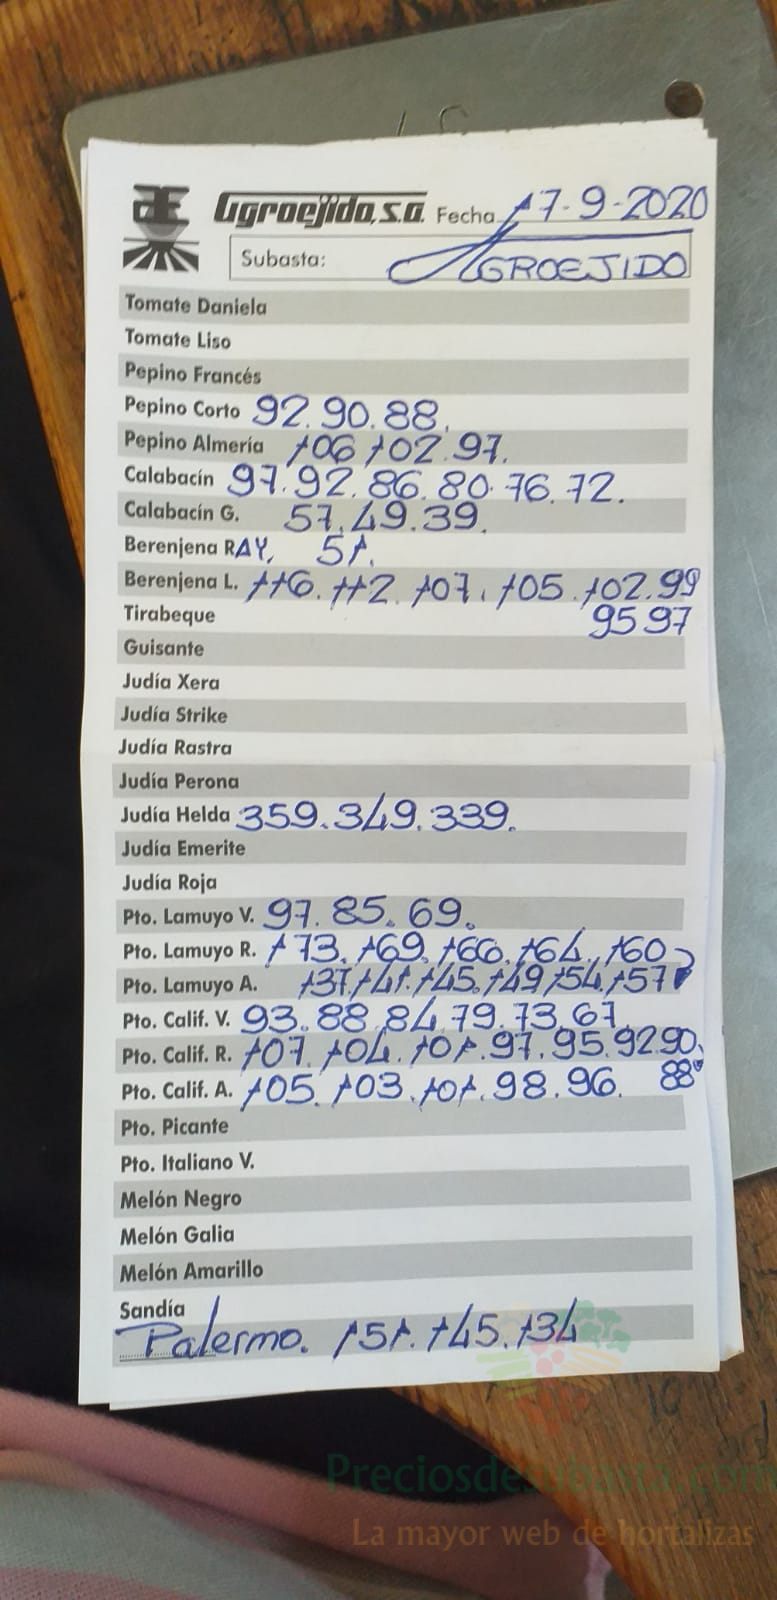 Agroejido, s.a. Fecha 17-9-2020
Subasta: AGROEJIDO
Tomate Daniela
Tomate Liso
Pepino Francés
Pepino Corto 92. 90. 88.
Pepino Almería 106 102. 97.
Calabacín 97. 92. 86. 80. 76. 72.
Calabacín G. 57. 49. 39.
Berenjena RAY. 51.
Berenjena L. 116. 112. 107. 105. 102. 99
95 97
Tirabeque
Guisante
Judía Xera
Judía Strike
Judía Rastra
Judía Perona
Judía Helda 359. 349. 339.
Judía Emerite
Judía Roja
Pto. Lamuyo V. 97. 85. 69.
Pto. Lamuyo R. 173. 169. 166. 164. 160
Pto. Lamuyo A. 137. 141. 145. 149 154. 157
Pto. Calif. V. 93. 88. 84 79. 73. 67
Pto. Calif. R. 107. 104. 101. 97. 95. 92 90.
88
Pto. Calif. A. 105. 103. 101. 98. 96.
Pto. Picante
Pto. Italiano V.
Melón Negro
Melón Galia
Melón Amarillo
Sandía
Palermo. 151. 145. 134
Preciosdesubasta.com
La mayor web de hortalizas